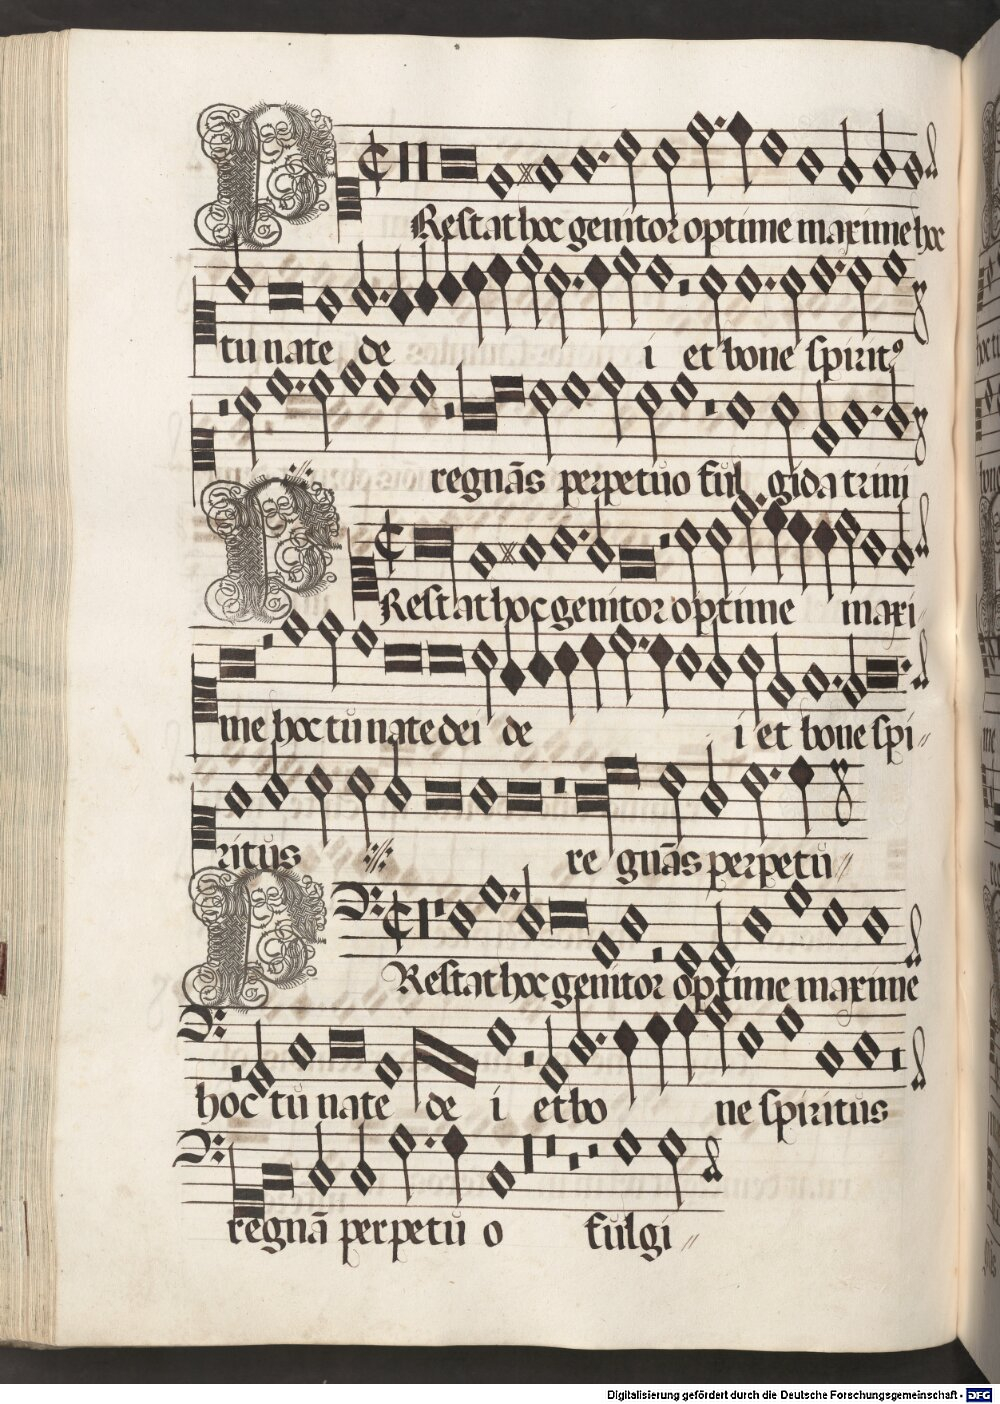 PRestat hoc genitor optime maxime hoc
tu nate de i et bone spirit⁹
regnās perpetuo ful gida trini
PRestat hoc genitor optime maxi
me hoc tu nate dei de i et bone spi
ritus re gnās perpetu
PRestat hoc genitor optime maxime
hoc tu nate de i et bo ne spiritus
regnā perpetu o fulgi
Digitalisierung gefördert durch die Deutsche Forschungsgemeinschaft - DFG